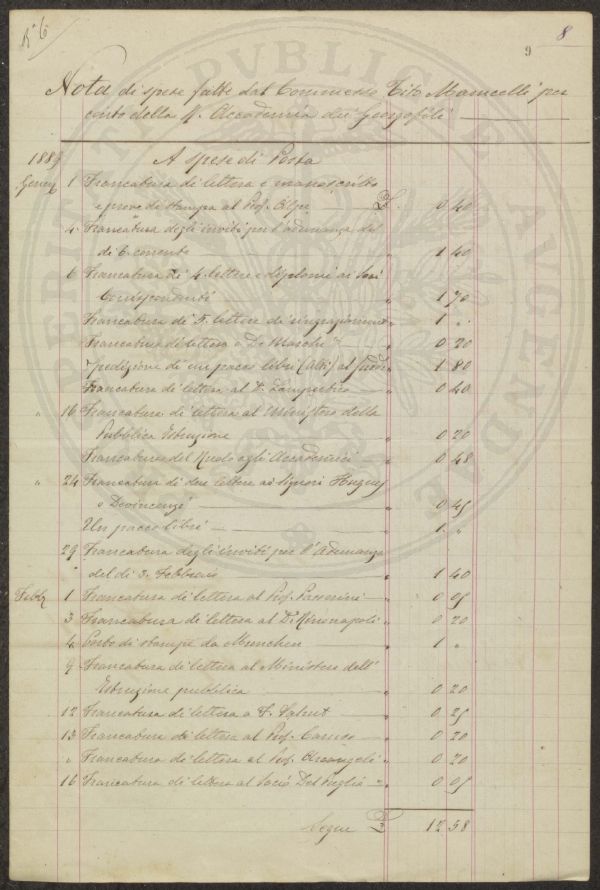 N° 6
9
8
Nota di spese fatte dal Commesso Tito Mamcelli per
conto della R. Accademia dei Georgofili
PUBLICE
PROSPERITATI AUGENDAE
1889 A spese di Posta
Genn 1 Francatura di lettera e manoscritto
e prove di stampa al Prof. £ 0 40
4 Francatura degli inviti per l'adunanza del
dì 6 corrente " 1 40
6 Francatura di 4 lettere e diplomi ai Soci
Corrispondenti " 1 70
Francatura di 5 lettere di ringraziamento " 1 "
Francatura di lettera a De Marchi " 0 20
Spedizione di un pacco libri (Atti) al " 1 80
Francatura di lettera al D. Lampertico " 0 40
" 16 Francatura di lettera al Ministero della
Pubblica Istruzione " 0 20
Francatura del Ruolo agli Accademici " 0 48
" 24 Francatura di due lettere ai Signori Hugues
e Devincenzi " 0 45
Un pacco libri " 1 "
29 Francatura degli inviti per l'adunanza
del dì 3 Febbraio " 1 40
Febb 1 Francatura di lettera al Prof. Passerini " 0 05
3 Francatura di lettera al D. " 0 20
4 Porto di stampe da Munchen " 1 "
9 Francatura di lettera al Ministero dell'
Istruzione pubblica " 0 20
12 Francatura di lettera a F. " 0 25
13 Francatura di lettera al Prof. Caruso " 0 20
" Francatura di lettera al Prof. Arcangeli " 0 20
16 Francatura di lettera al Socio Del Puglia " 0 05
Segue £ 12 58